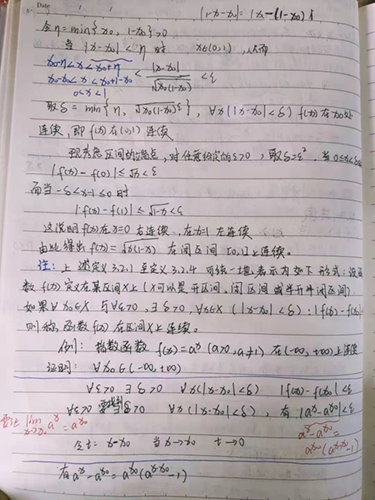 Date
|1-x-x₀| = |x-(1-x₀)|
令η=min{x₀, 1-x₀}>0
当 |x-x₀|<η 时 x∈(0,1), 从而
x₀-η<x<x₀+η
x₀-x₀<x<x₀+1-x₀
0<x<1
< |x-x₀| / √x₀(1-x₀) < ε
取δ=min{η, √x₀(1-x₀) ε}, ∀x(|x-x₀|<δ) f(x)在x₀处
连续, 即f(x)在(0,1)连续
现考虑区间的端点, 对任意给定的ε>0, 取δ=ε², 当0≤x<δ
|f(x)-f(0)|≤√x<ε
而当-δ<x-1≤0时
|f(x)-f(1)|≤√1-x<ε
这说明f(x)在x=0右连续, 在x=1左连续
由此得出f(x)=√x(1-x) 在闭区间[0,1]上连续.
注: 上述定义3.2.1至定义3.2.4可统一地表示为如下形式: 设函
数f(x)定义在某区间X上(X可以是开区间, 闭区间或半开半闭区间)
如果∀x₀∈X 与∀ε>0, ∃δ>0, ∀x∈X(|x-x₀|<δ): |f(x)-f(x₀)|
则称函数f(x)在区间X上连续.
例: 指数函数 f(x)=aˣ (a>0, a≠1) 在(-∞,+∞)上连续
证明: ∀x₀∈(-∞,+∞)
∀ε>0 ∃δ>0 ∀x(|x-x₀|<δ) |f(x)-f(x₀)|<ε
∀ε>0 δ>0 ∀x(|x-x₀|<δ), 有|aˣ-aˣ⁰|<ε
lim x→x₀ aˣ=aˣ⁰
aˣ-aˣ⁰=
aˣ⁰(aˣ⁻ˣ⁰-1)
令t=x-x₀ 当x→x₀ t→0
有aˣ-aˣ⁰=aˣ⁰(aˣ⁻ˣ⁰-1)